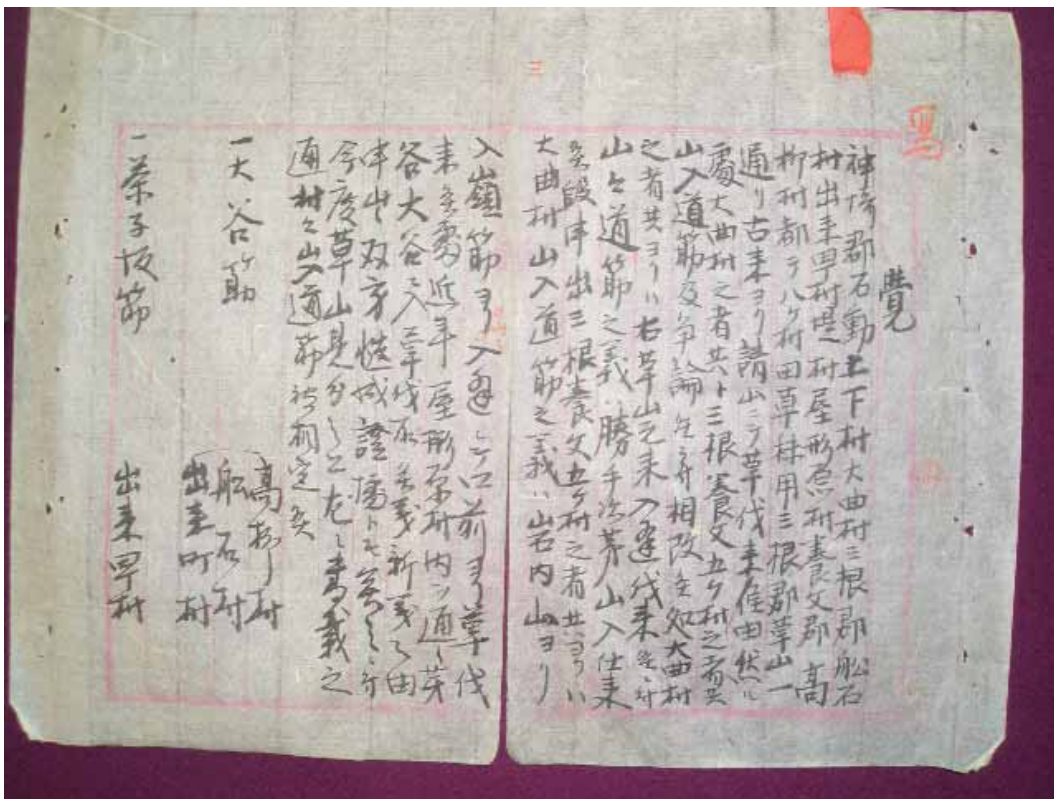 寫
三
覺
神埼郡石動上下村大曲村三根郡舩石
村出来町村堤村屋形原村養父郡高
柳村都テ八ヶ村田草秣用三根郡草山一
通リ古来ヨリ請山ニテ草伐来候由然ル
處大曲村之者共ト三根養父五ヶ村之者共
山入道筋及争論候ニ付相改候処大曲村
之者共ヨリハ右草山元来入逢伐来候ニ付
山々道筋之義ハ勝手次第山入仕来
候段申出三根養父五ヶ村之者共ヨリハ
大曲村山入道筋之義ハ岩内山ヨリ
入嶺筋ヨリ入逢之口前ヨリ草伐
来候處近年屋形原村内ヲ通リ茅
谷大谷ヘ入草伐取候義新義之由
申出双方慥成證據モ無之ニ付
今度草山見分之上左之書載之
通村々山入道筋被相定候
一大谷筋
高柳村
舩石村
出来町村
一茶子坂筋
出来町村